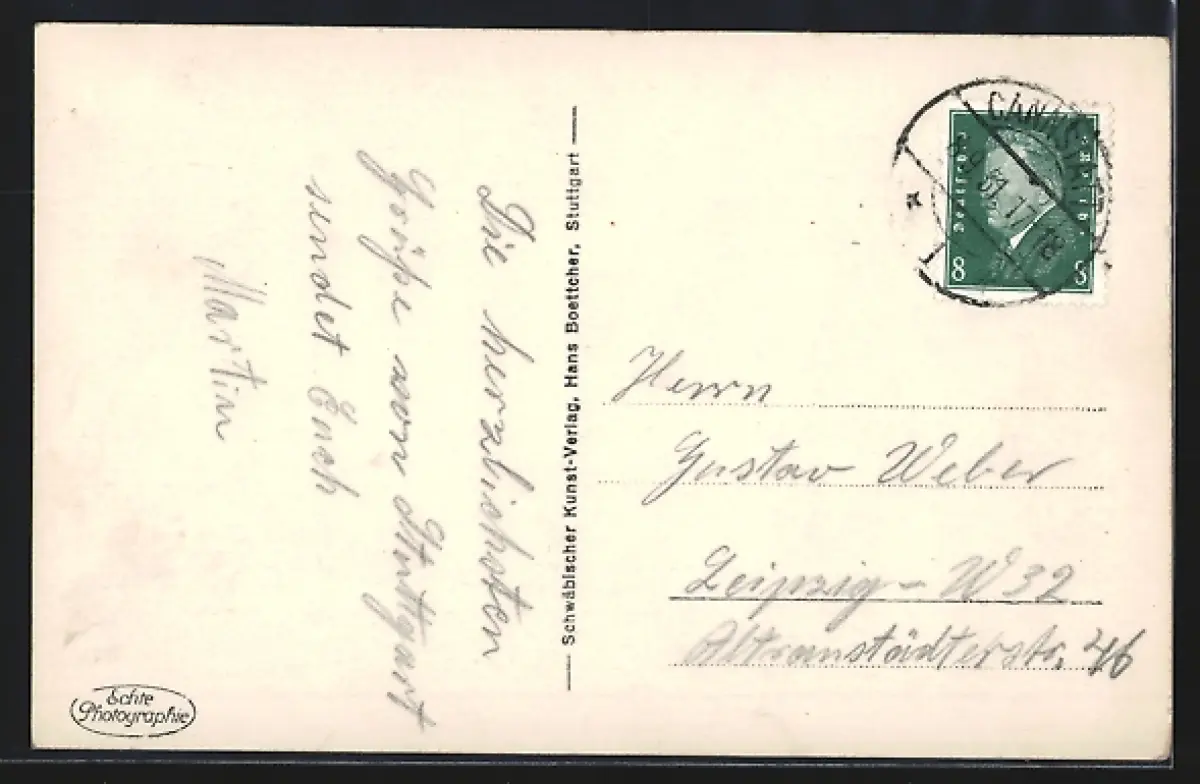 Die herzlichsten
Grüße von Stuttgart
sendet Euch
Martin
Schwäbischer Kunst-Verlag, Hans Boettcher, Stuttgart
CANNSTATT
31.17-18
8 8
Herrn
Gustav Weber
Leipzig - W 32
Altranstädterstr. 46
Echte
Photographie